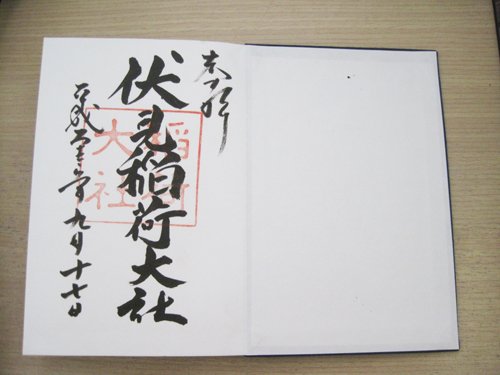 奉拝
伏見稲荷大社
平成 年九月十七日
稲荷
大社